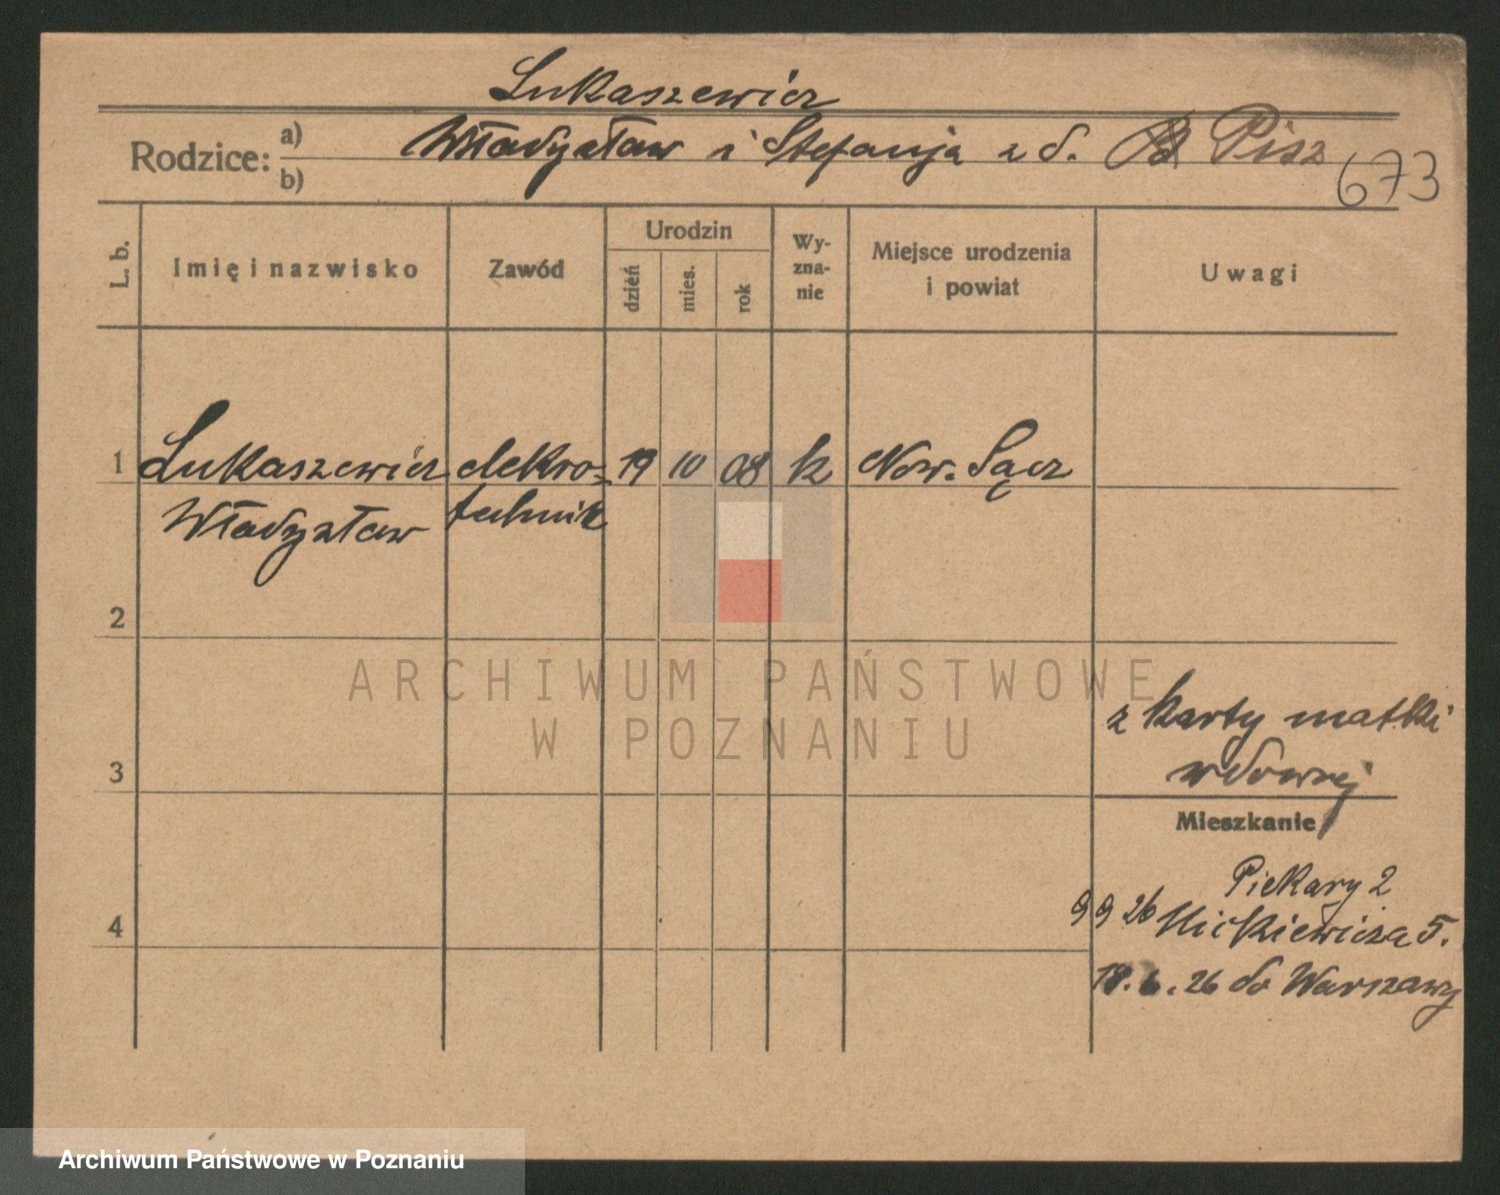 Łukaszewicz
Rodzice: a) Władysław i Stefanja z d. Pisz
b)
673
L. b.
Imię i nazwisko
Zawód
Urodzin
dzień
mies.
rok
Wy-
zna-
nie
Miejsce urodzenia
i powiat
Uwagi
1 Łukaszewicz elektro- 19 10 08 k Now. Sącz
Władysław technik
2
ARCHIWUM PAŃSTWOWE
W POZNANIU
z karty matki
3
wdowej
Mieszkanie
Piekary 2
9 9 26 Mickiewicza 5.
4
18. 6. 26 do Warszawy
Archiwum Państwowe w Poznaniu